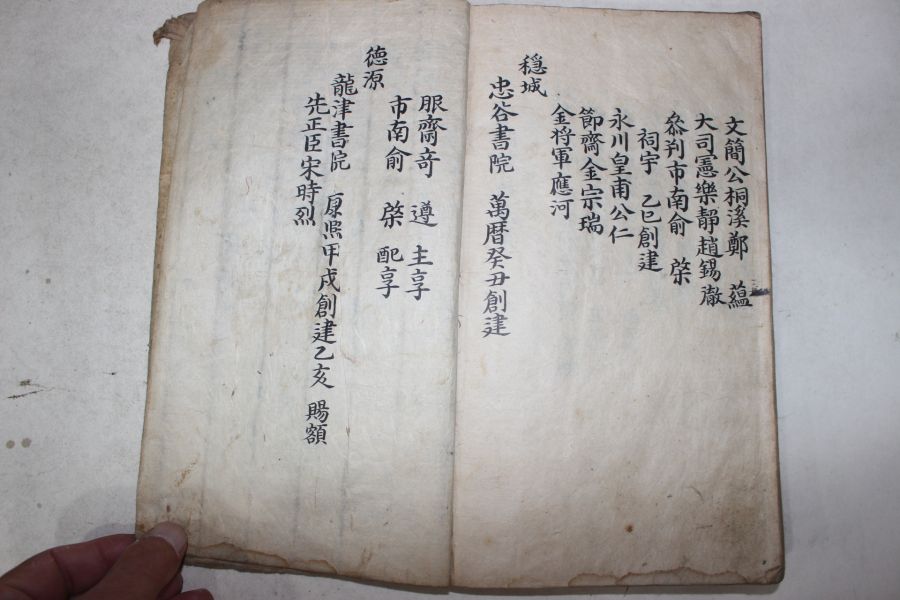 文簡公桐溪鄭 蘊
大司憲樂靜趙錫㵓
叅判市南俞 棨
祠宇 乙巳創建
永川皇甫公仁
節齋金宗瑞
金将軍應河
穩城
忠谷書院 萬曆癸丑創建
服齋竒 遵 主享
市南俞 棨 配享
德源
龍津書院 康熙甲戌創建乙亥 賜額
先正臣宋時烈